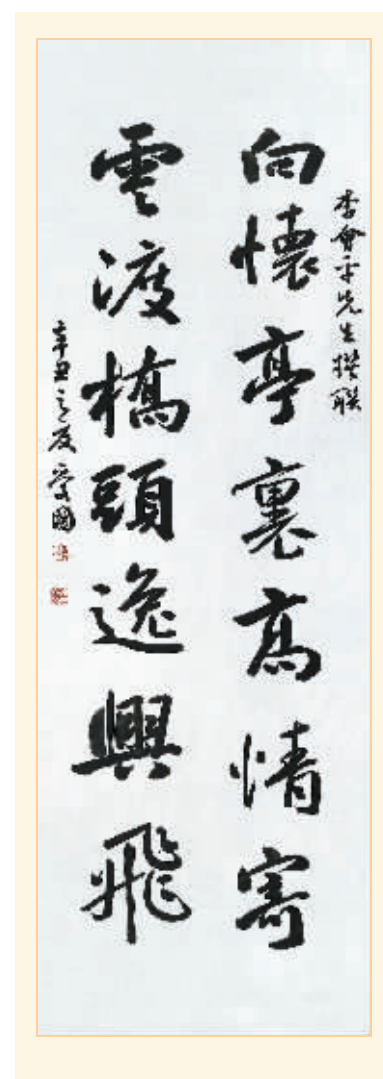 李會平先生撰联
向懷亭裏高情寄
雲渡橋頭逸興飛
辛丑之夏愛國